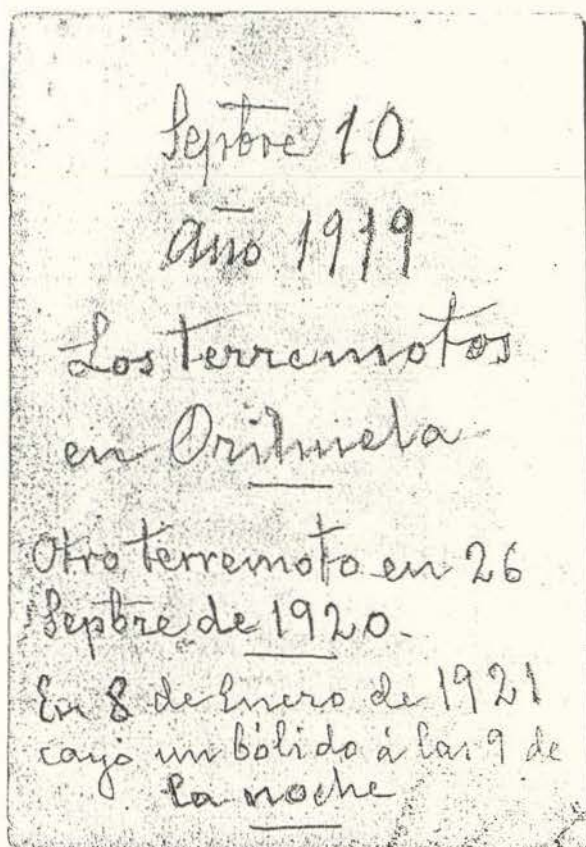 Septbre 10
año 1919
Los terremotos
en Orihuela
Otro terremoto en 26
Septbre de 1920.
En 8 de Enero de 1921
cayó un bólido á las 9 de
la noche